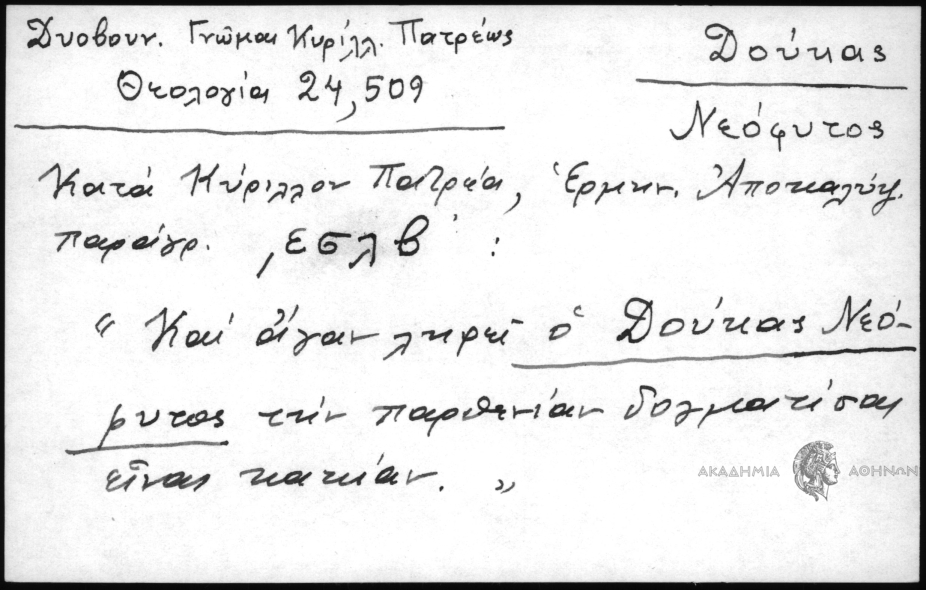 Δυοβουν. Γνῶμαι Κυρίλλ. Πατρέως
Θεολογία 24,509
Δούκας
Νεόφυτος
Κατά Κύριλλον Πατρέα, Ἑρμην. Ἀποκαλύψ.
παράγρ. ͵εσλβ΄ :
“ Καί ἄγαν ληρεῖ ὁ Δούκας Νεό-
φυτος τήν παρθενίαν δογματίσας
εἶναι κακίαν. ”
ΑΚΑΔΗΜΙΑ ΑΘΗΝΩΝ